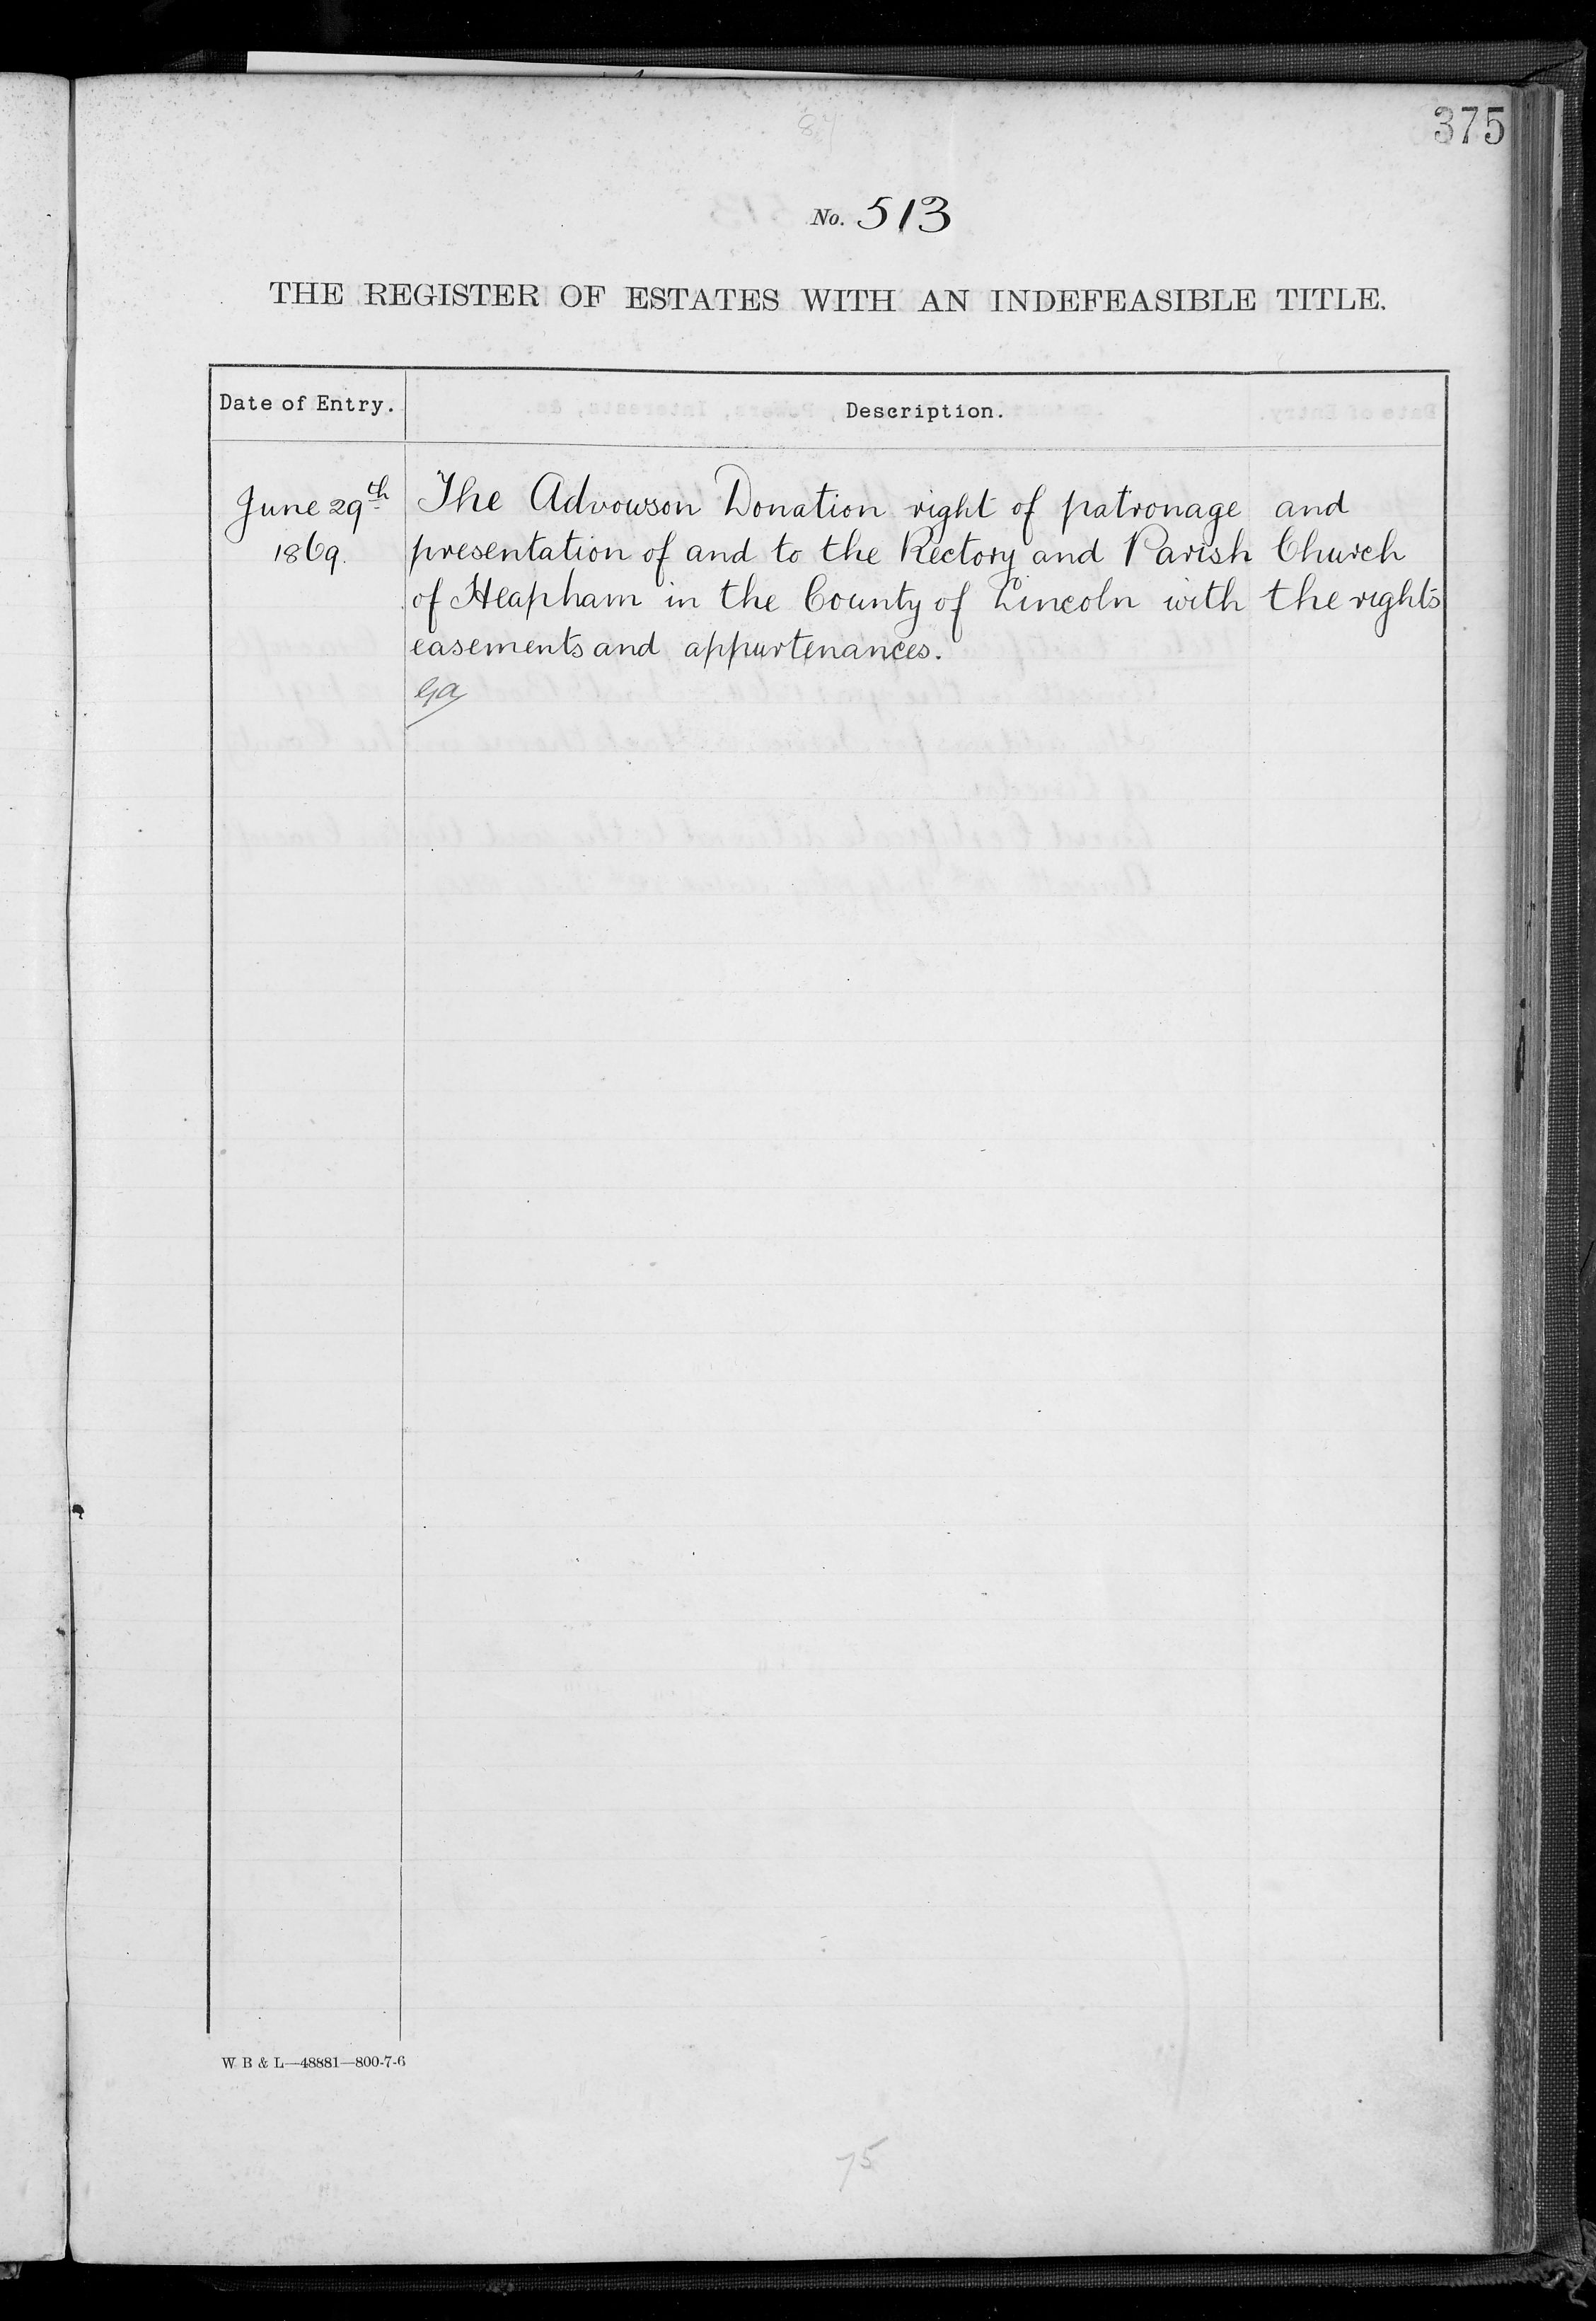 375
No. 513
THE REGISTER OF ESTATES WITH AN INDEFEASIBLE TITLE.
Date of Entry.
Description.
June 29th
1869.
The Advowson Donation right of patronage and
presentation of and to the Rectory and Parish Church
of Heapham in the County of Lincoln with the rights
easements and appurtenances.
W B & L—48881—800-7-6
75